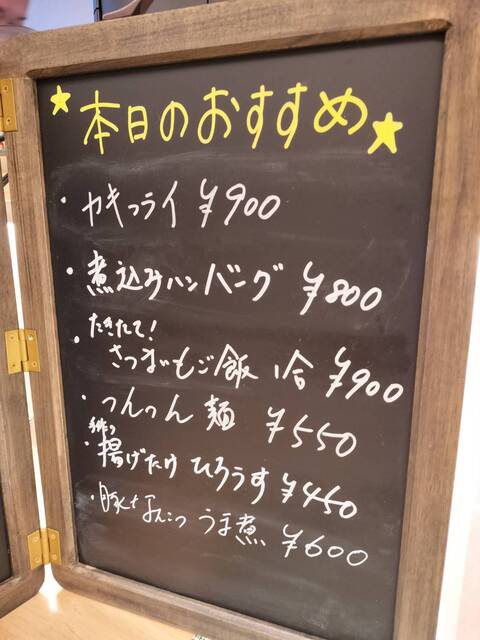 ★本日のおすすめ★
・カキフライ ¥900
・煮込みハンバーグ ¥800
たきたて!
・さつまいもご飯 1合 ¥900
・つんつん麺 ¥550
手作り
・揚げたけ ひろうす ¥450
・豚と うま煮 ¥600